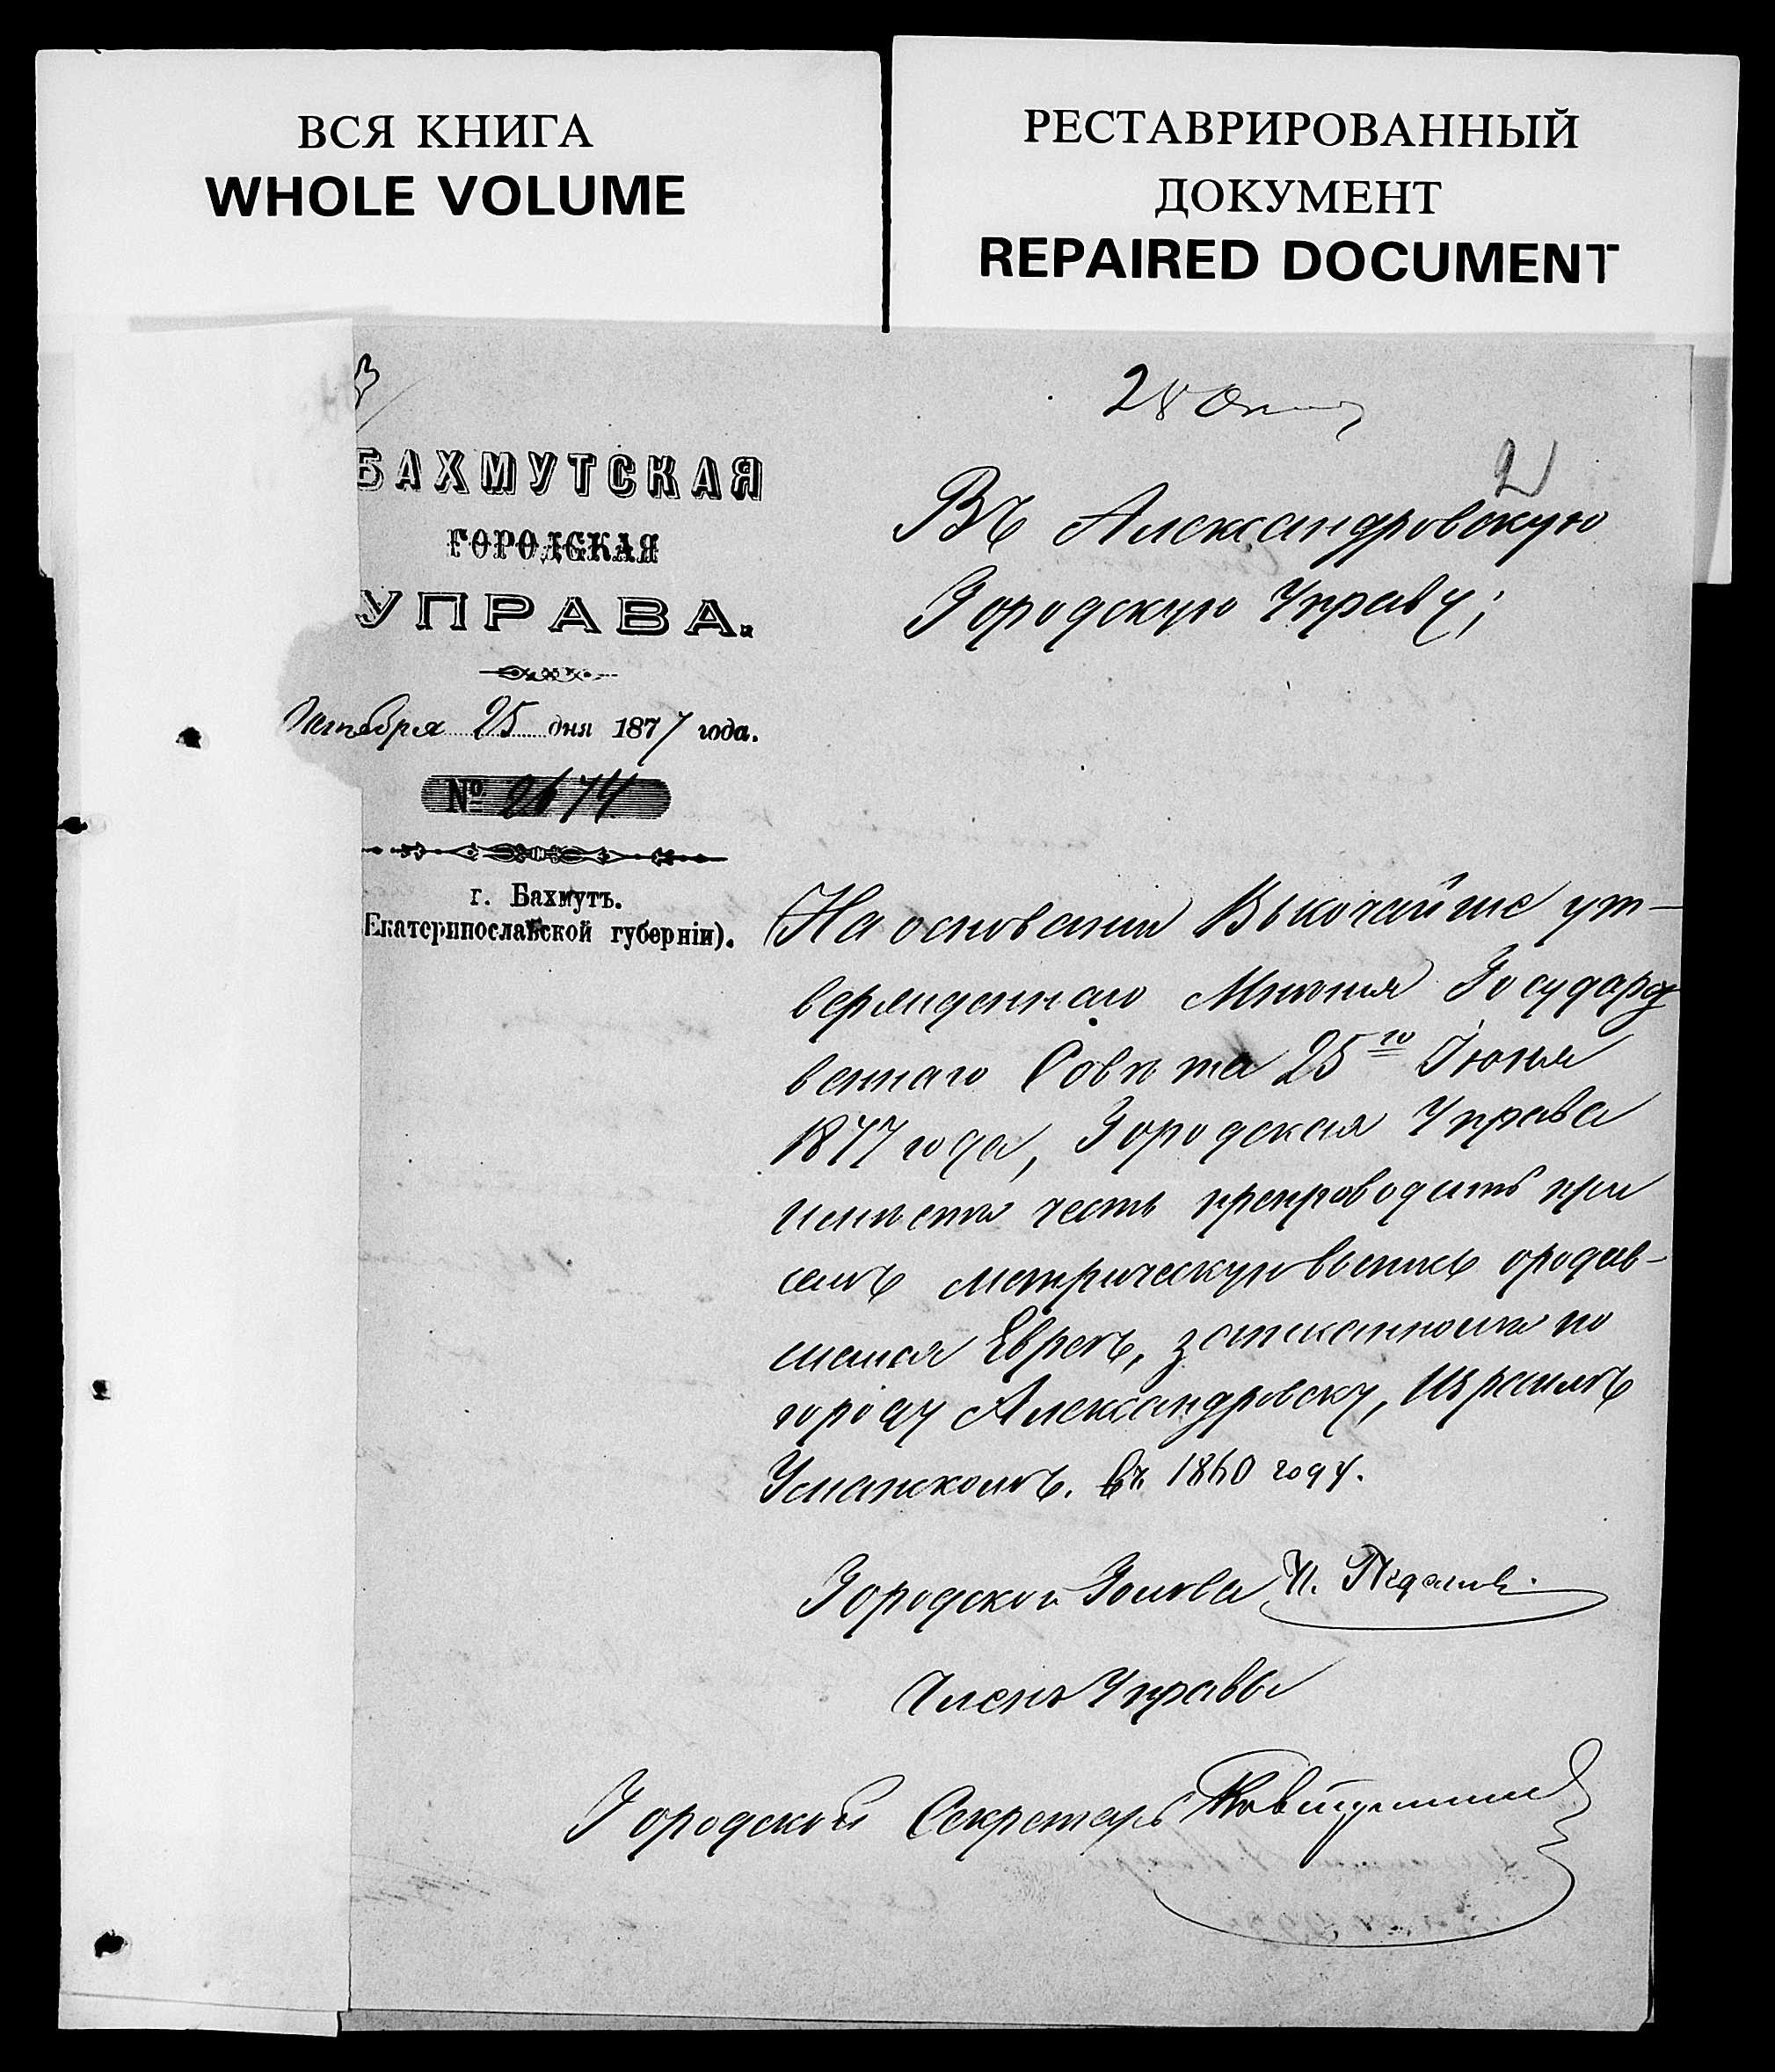 ВСЯ КНИГА
WHOLE VOLUME
РЕСТАВРИРОВАННЫЙ
ДОКУМЕНТ
REPAIRED DOCUMENT
28
2
БАХМУТСКАЯ
ГОРОДСКАЯ
УПРАВА.
Октября 25 дня 1877 года.
№ 2674
г. Бахмутъ.
Екатеринославской губерніи).
Въ Александровскую
Городскую Управу;
На основании Высочайше ут-
вержденнаго Мнѣния Государст
веннаго Совѣта 25го Іюня
1877 года, Городская Управа
имѣетъ честь препроводить при
семъ метрическую выпись о родив-
шемся Евреѣ, записанномъ по
городу Александровску, Израилѣ
Уманскомъ. въ 1860 году.
Городской Голова И.
Членъ Управы
Городской Секретарь